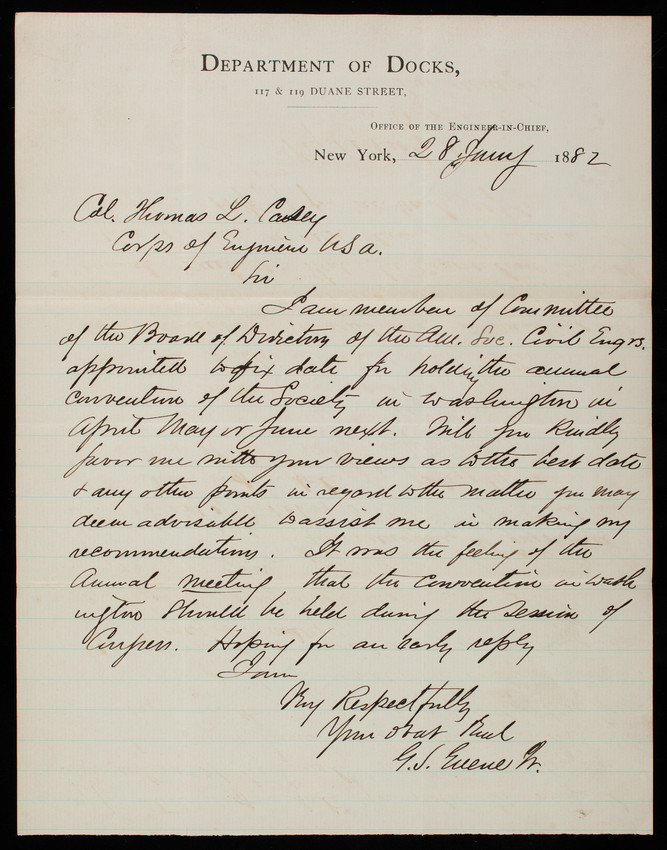 DEPARTMENT OF DOCKS,
117 & 119 DUANE STREET,
OFFICE OF THE ENGINEER-IN-CHIEF,
New York, 28 Jany 1882
Col. Thomas L. Casey
Corps of Engineers U.S.A.
Sir
I am member of Committee
of the Board of Direction of the Am. Soc. Civil Engrs.
appointed to fix date for holding the annual
convention of the Society in Washington in
April May or June next. Will you kindly
favor me with your views as to the best date
& any other points in regard to the matter you may
deem advisable to assist me in making my
recommendations. It was the feeling of the
Annual meeting that the convention in Wash
ington should be held during the session of
Congress. Hoping for an early reply
I am
Very Respectfully
Your obdt
G.S. Greene Jr.